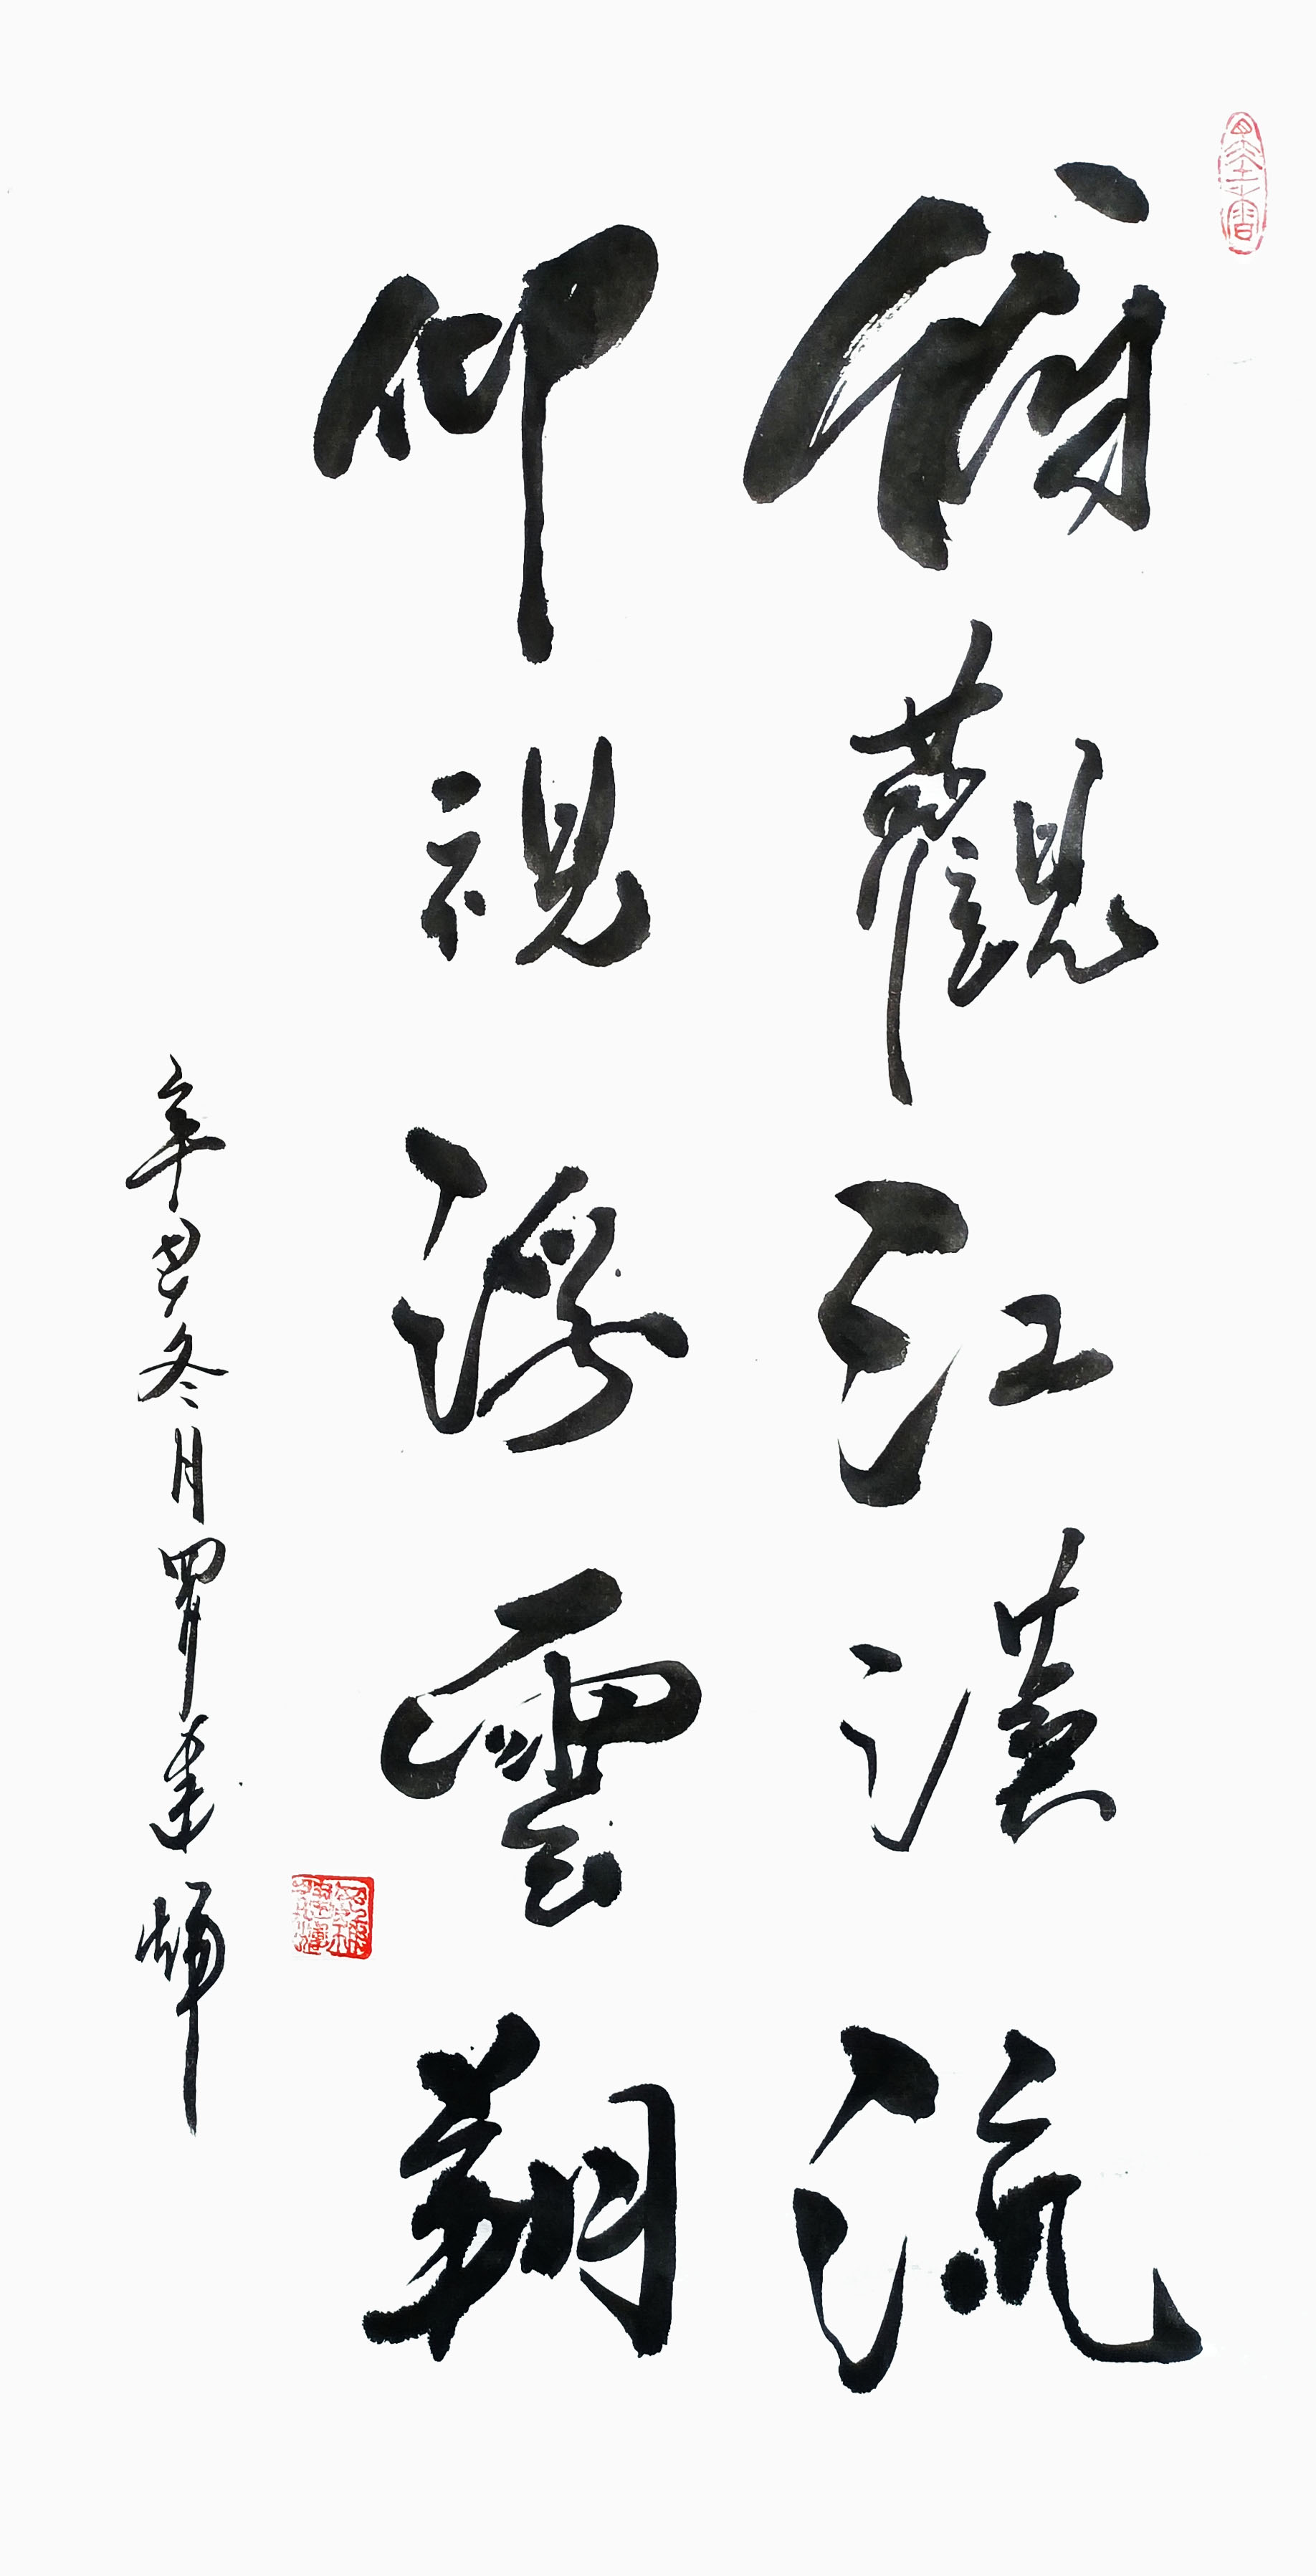 俯觀江漢流
仰視浮雲翔
辛丑冬月羅建輝